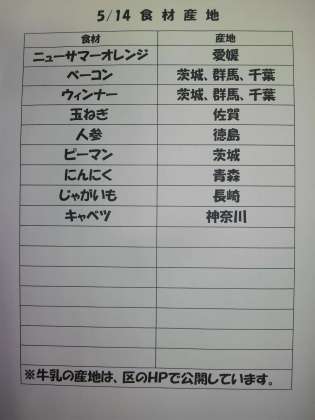 5/14 食材産地
食材 産地
ニューサマーオレンジ 愛媛
ベーコン 茨城、群馬、千葉
ウィンナー 茨城、群馬、千葉
玉ねぎ 佐賀
人参 徳島
ピーマン 茨城
にんにく 青森
じゃがいも 長崎
キャベツ 神奈川
※牛乳の産地は、区のHPで公開しています。